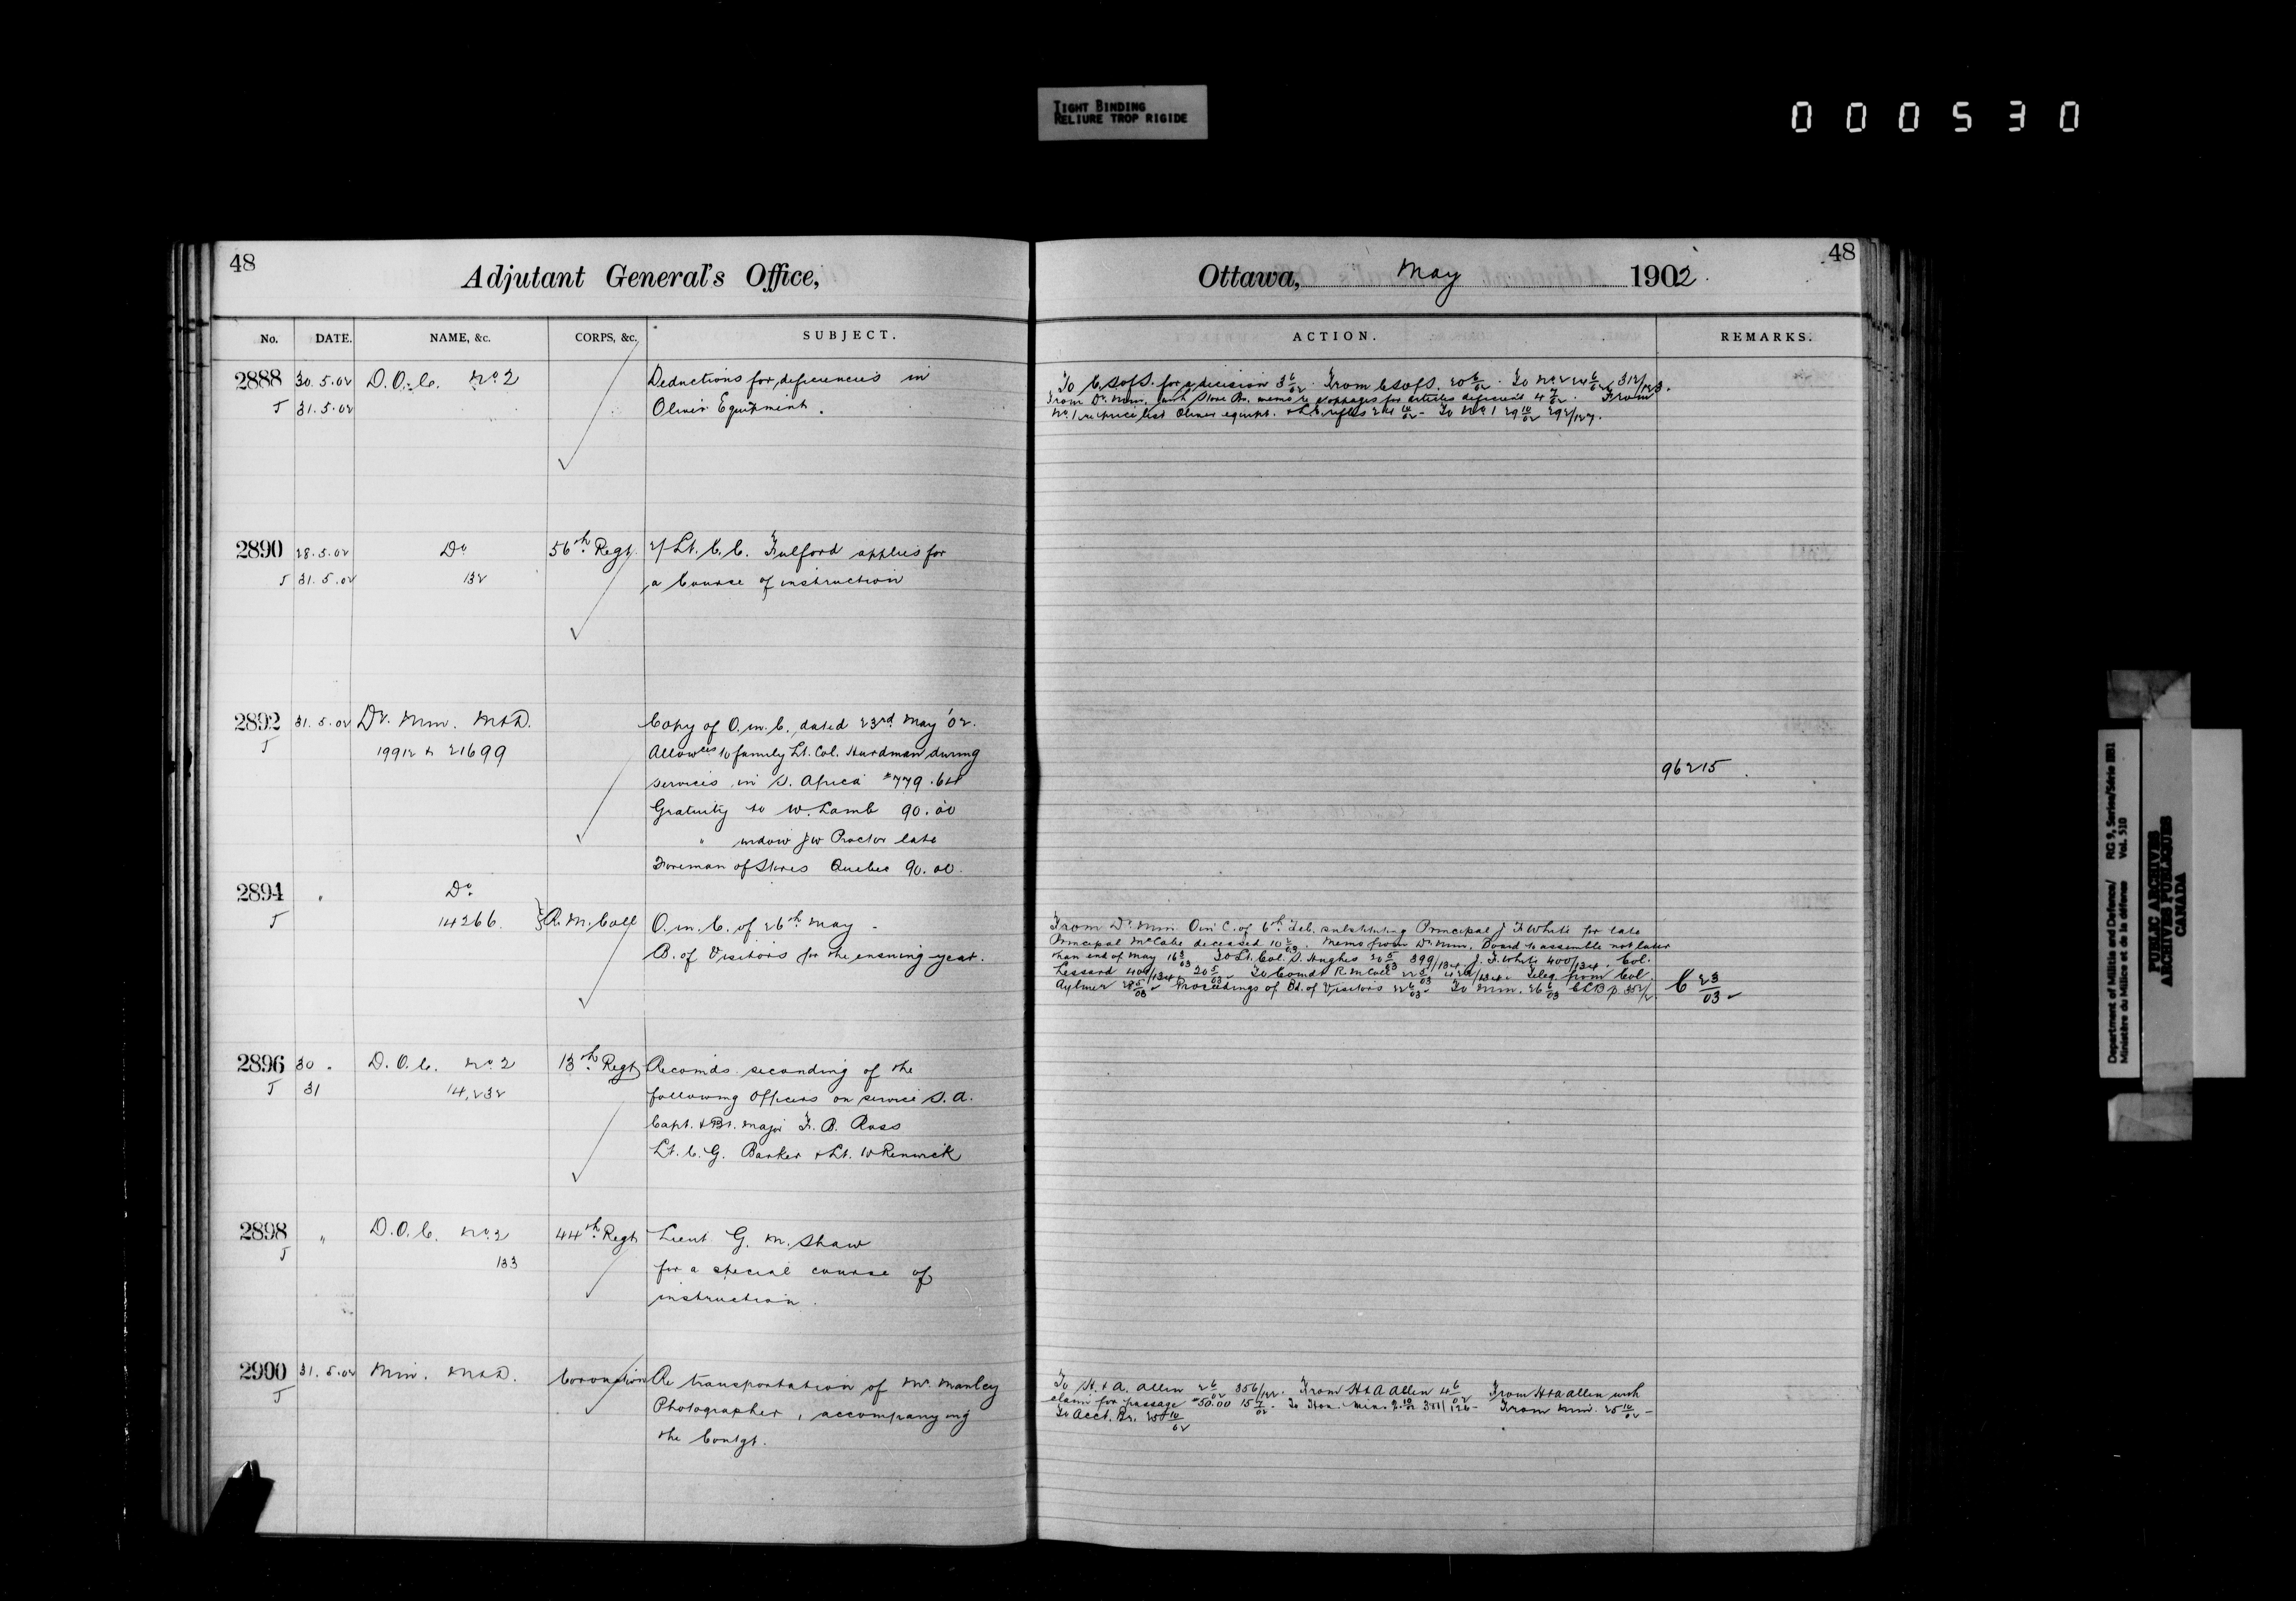 TIGHT BINDING
RELIURE TROP RIGIDE
000530
48
Adjutant General's Office,
No. DATE. NAME, &c. CORPS, &c. SUBJECT.
2888 30.5.02 D.O.C. No 2 Deductions for deficiencies in
J 31.5.02 Oliver Equipment.
2890 28.5.02 Do 56th Regt. 2/Lt. C.C. Fulford applies for
J 31.5.02 132 a Course of instruction
2892 31.5.02 Dy. Min. M&D. Copy of O.in.C. dated 23rd May '02.
J 19912 & 21699 Allowces to family Lt. Col. Hurdman during
services in S. Africa $779.64
Gratuity to W. Lamb 90.00
" widow J W Proctor late
Foreman of Stores Quebec 90.00.
2894 " Do
J 14266. R.M. Coll O.in.C. of 26th May -
B. of Visitors for the ensuing year.
2896 30 " D.O.C. No 2 13th Regt Recomds. seconding of the
J 31 14,232 following Officers on service S.A.
Capt. & Bt. Major F.B. Ross
Lt. C.G. Barker & Lt. W Renwick
2898 " D.O.C. No 2 44th Regt Lieut G. M. Shaw
J 133 for a special course of
instruction.
2900 31.5.02 Min. M&D. Coronation Re transportation of Mr Manley
J Photographer, accompanying
the Contgt.
48
Ottawa, May 1902.
ACTION. REMARKS.
To C.S.of S. for decision 3 6/02. From C S of S. 20 6/02. To No 2 24 6/02 312/123.
From Dy. Min. with Store Br. memo re stoppages for articles deficient 4 7/02. From
No. 1 re price list Oliver equipt. & L.E. rifles 24 10/02 - To No 1 29 10/02 292/127.
96215.
From Dy. Min. O in C. of 6th Feb. substituting Principal J F White for late
Principal McCabe deceased 10 2/03. Memo from Dy. Min. Board to assemble not later
than end of May 16 3/03 To Lt. Col. S. Hughes 20 5/03 399/134. J. F. White 400/134. Col.
Lessard 401/134 20 5/03 To Comdt R.M Coll 22 5/03 /134. Teleg. from Col.
Aylmer 28 5/03 Proceedings of Bd. of Visitors 22 6/03 To Min. 26 6/03 C L B p. 352/2. C 23/03
To H. & A. Allan 2 6/02 356/122. From H & A Allan 4 6/02 From H & A Allan with
claim for passage $50.00 15 7/02. To Hon. Min. 2 10/02 311/126 - From Min. 25 10/02 -
To Acct. Br. 25 10/02
Department of Militia and Defence/ RG 9, Series/Série IIB1
Ministère du Milice et de la défense Vol. 510
PUBLIC ARCHIVES
ARCHIVES PUBLIQUES
CANADA